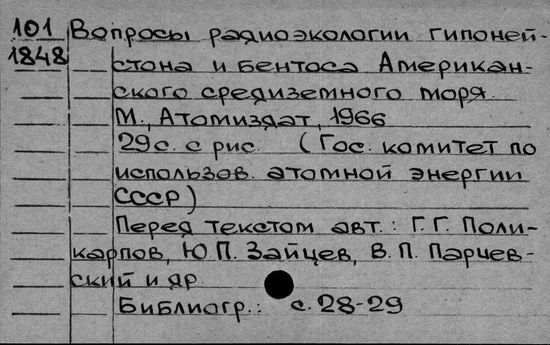 101 Вопросы радиоэкологии гипоней-
1848 стона и бентоса Американ-
ского средиземного моря.
М., Атомиздат, 1966
29с. с рис. (Гос. комитет по
использов. атомной энергии
СССР)
Перед текстом авт.: Г.Г. Поли-
карпов, Ю.П. Зайцев, В.П. Парчев-
ский и яр
Библиогр.: с. 28-29